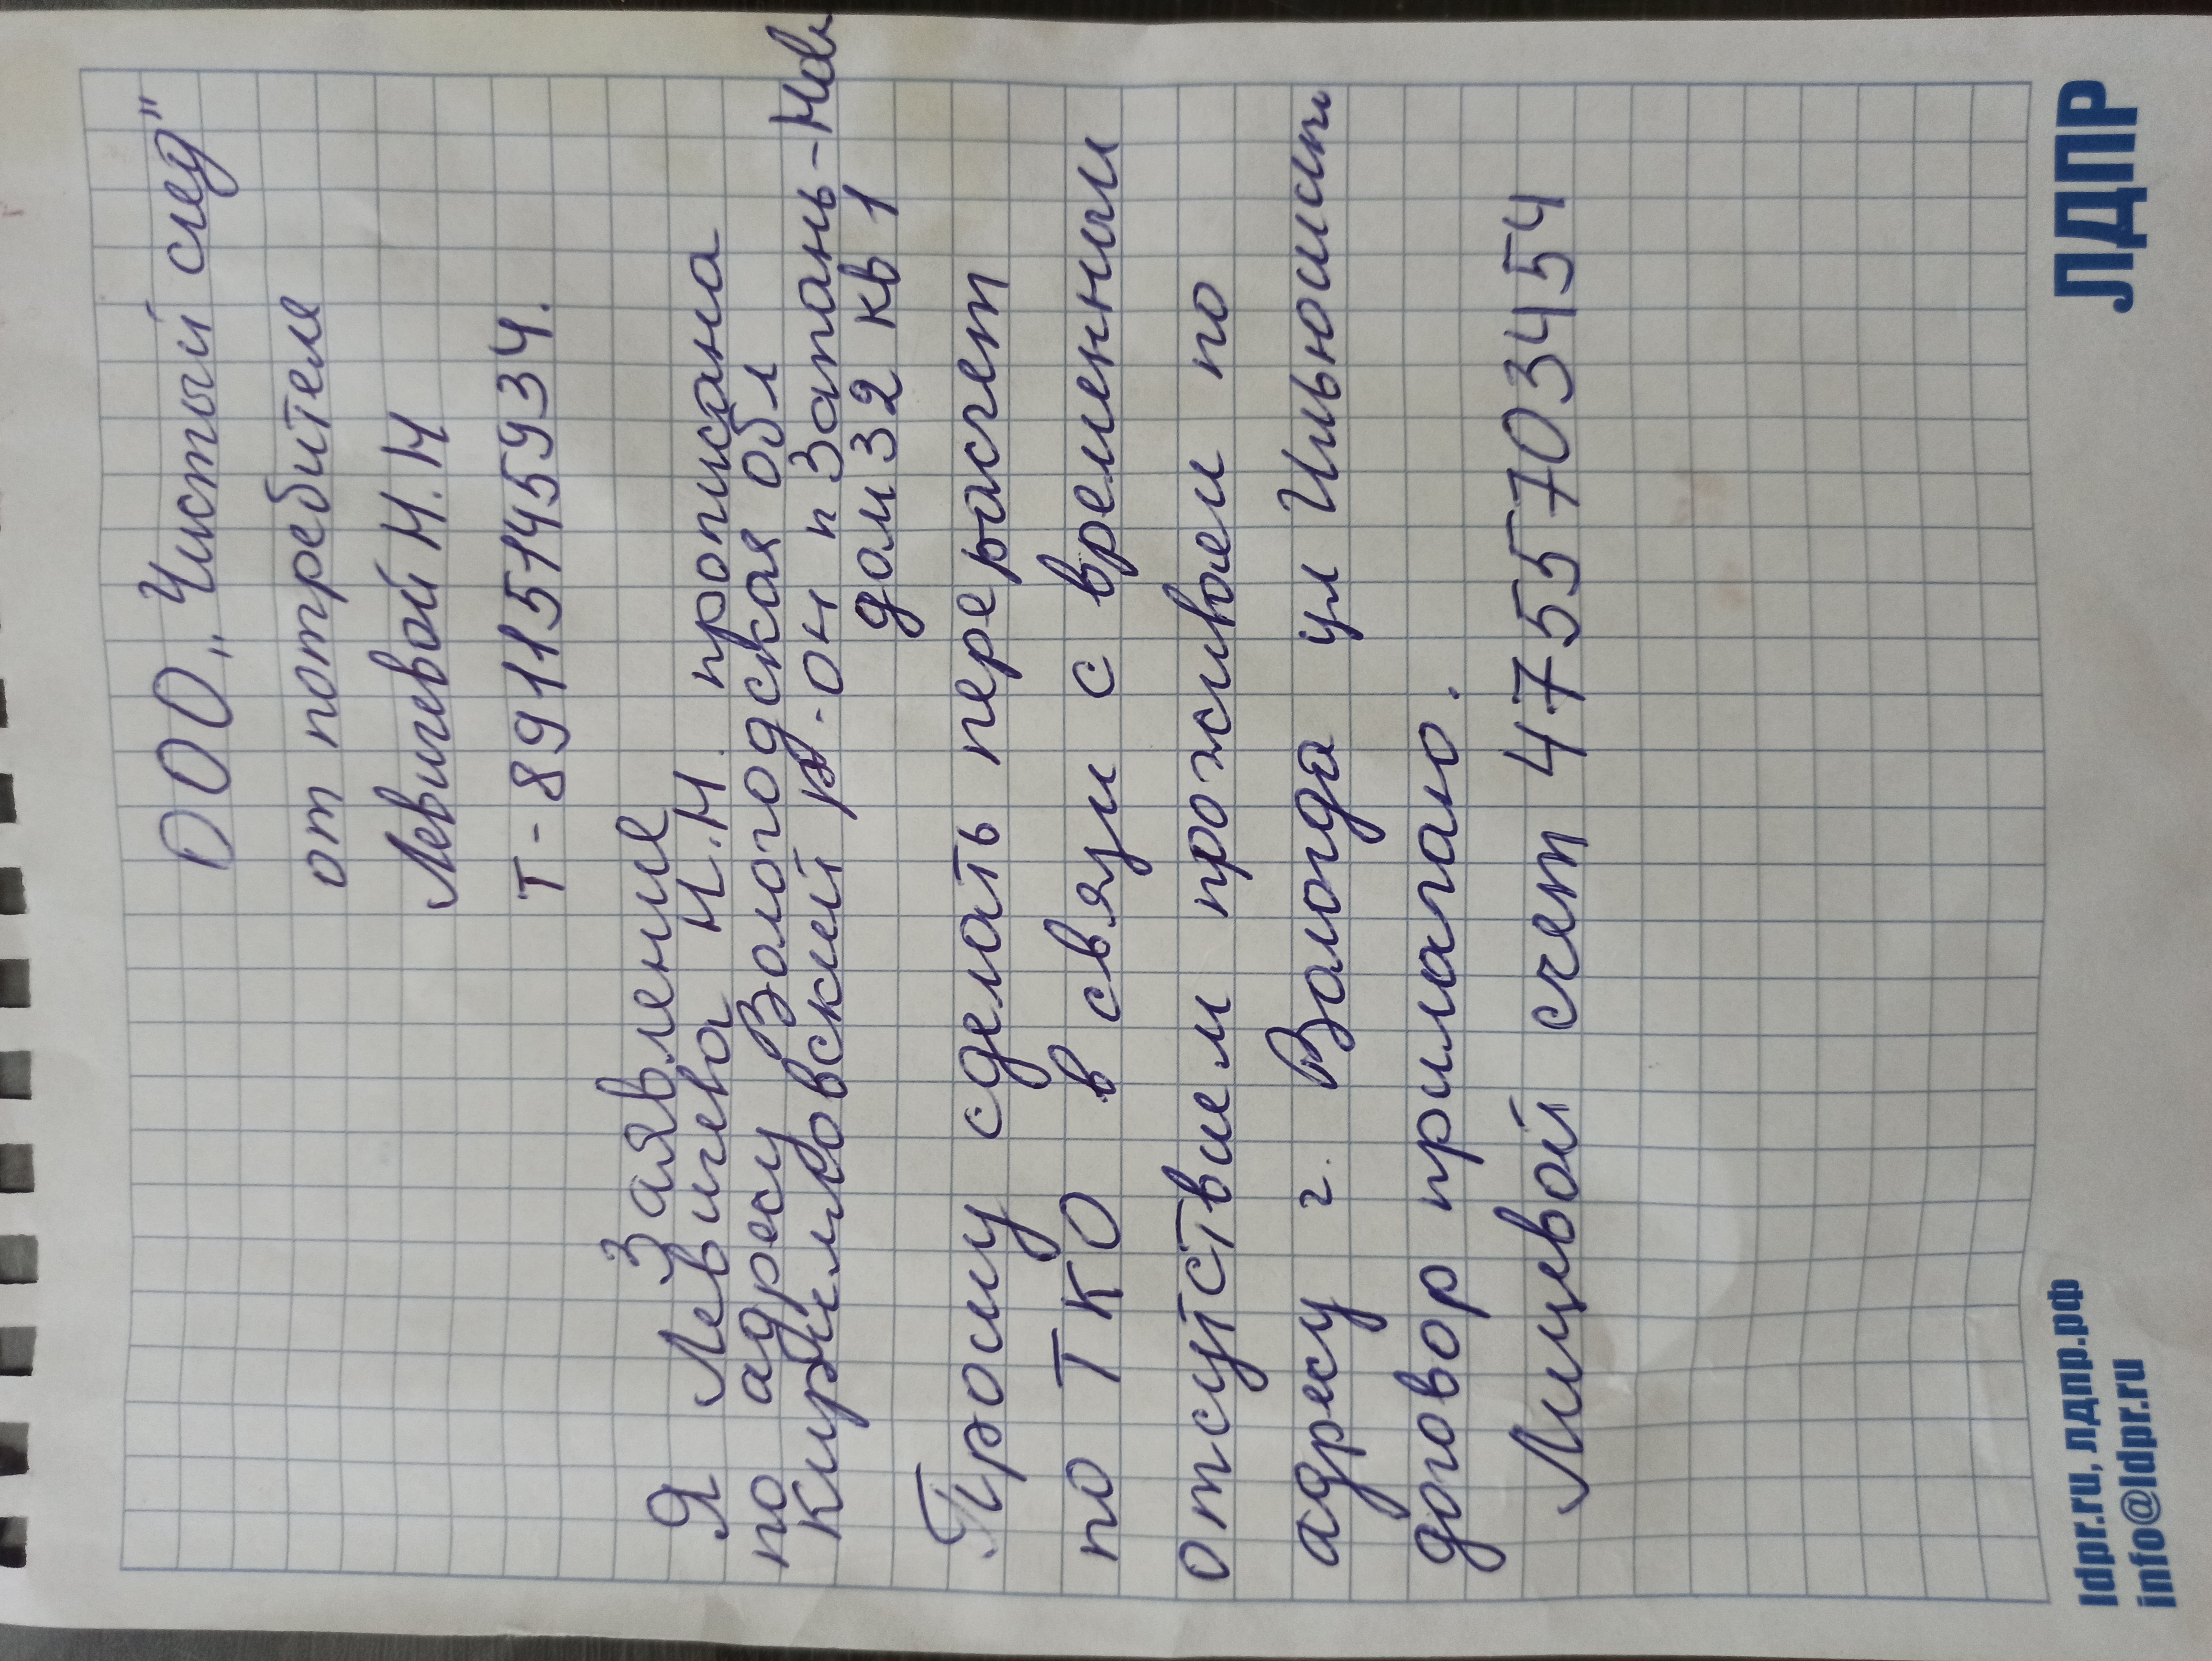 ООО „Чистый след"
от потребителя
Левичевой Н.Н
т-89115145934.
Заявление
Я Левичева Н.Н. прописана
по адресу Вологодская обл
Кирилловский р-он п Запань-Нова
дом 32 кв 1
Прошу сделать перерасчет
по ТКО в связи с временным
отсутствием проживаем по
адресу г. Вологда ул Ильюшина
договор прилагаю.
Лицевой счет 4755703454
ldpr.ru, лдпр.рф
info@ldpr.ru
ЛДПР